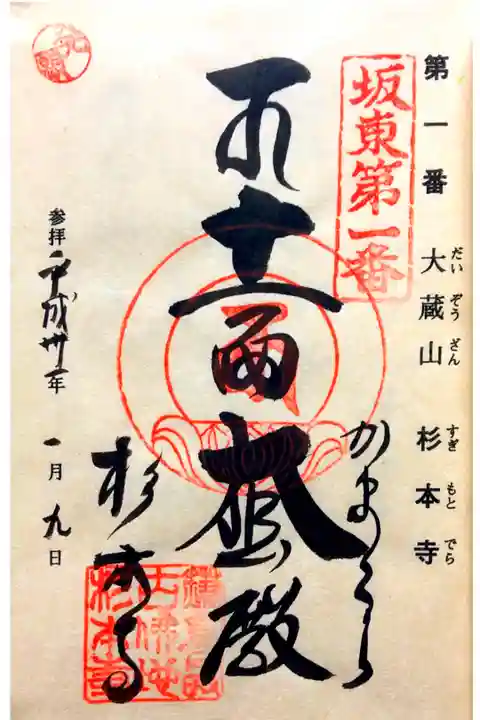 第一番 大蔵山 杉本寺
だいぞうざん すぎもとでら
坂東第一番
かまくら
十一面大悲殿
杉本寺
参拝 平成卅一年 一月九日